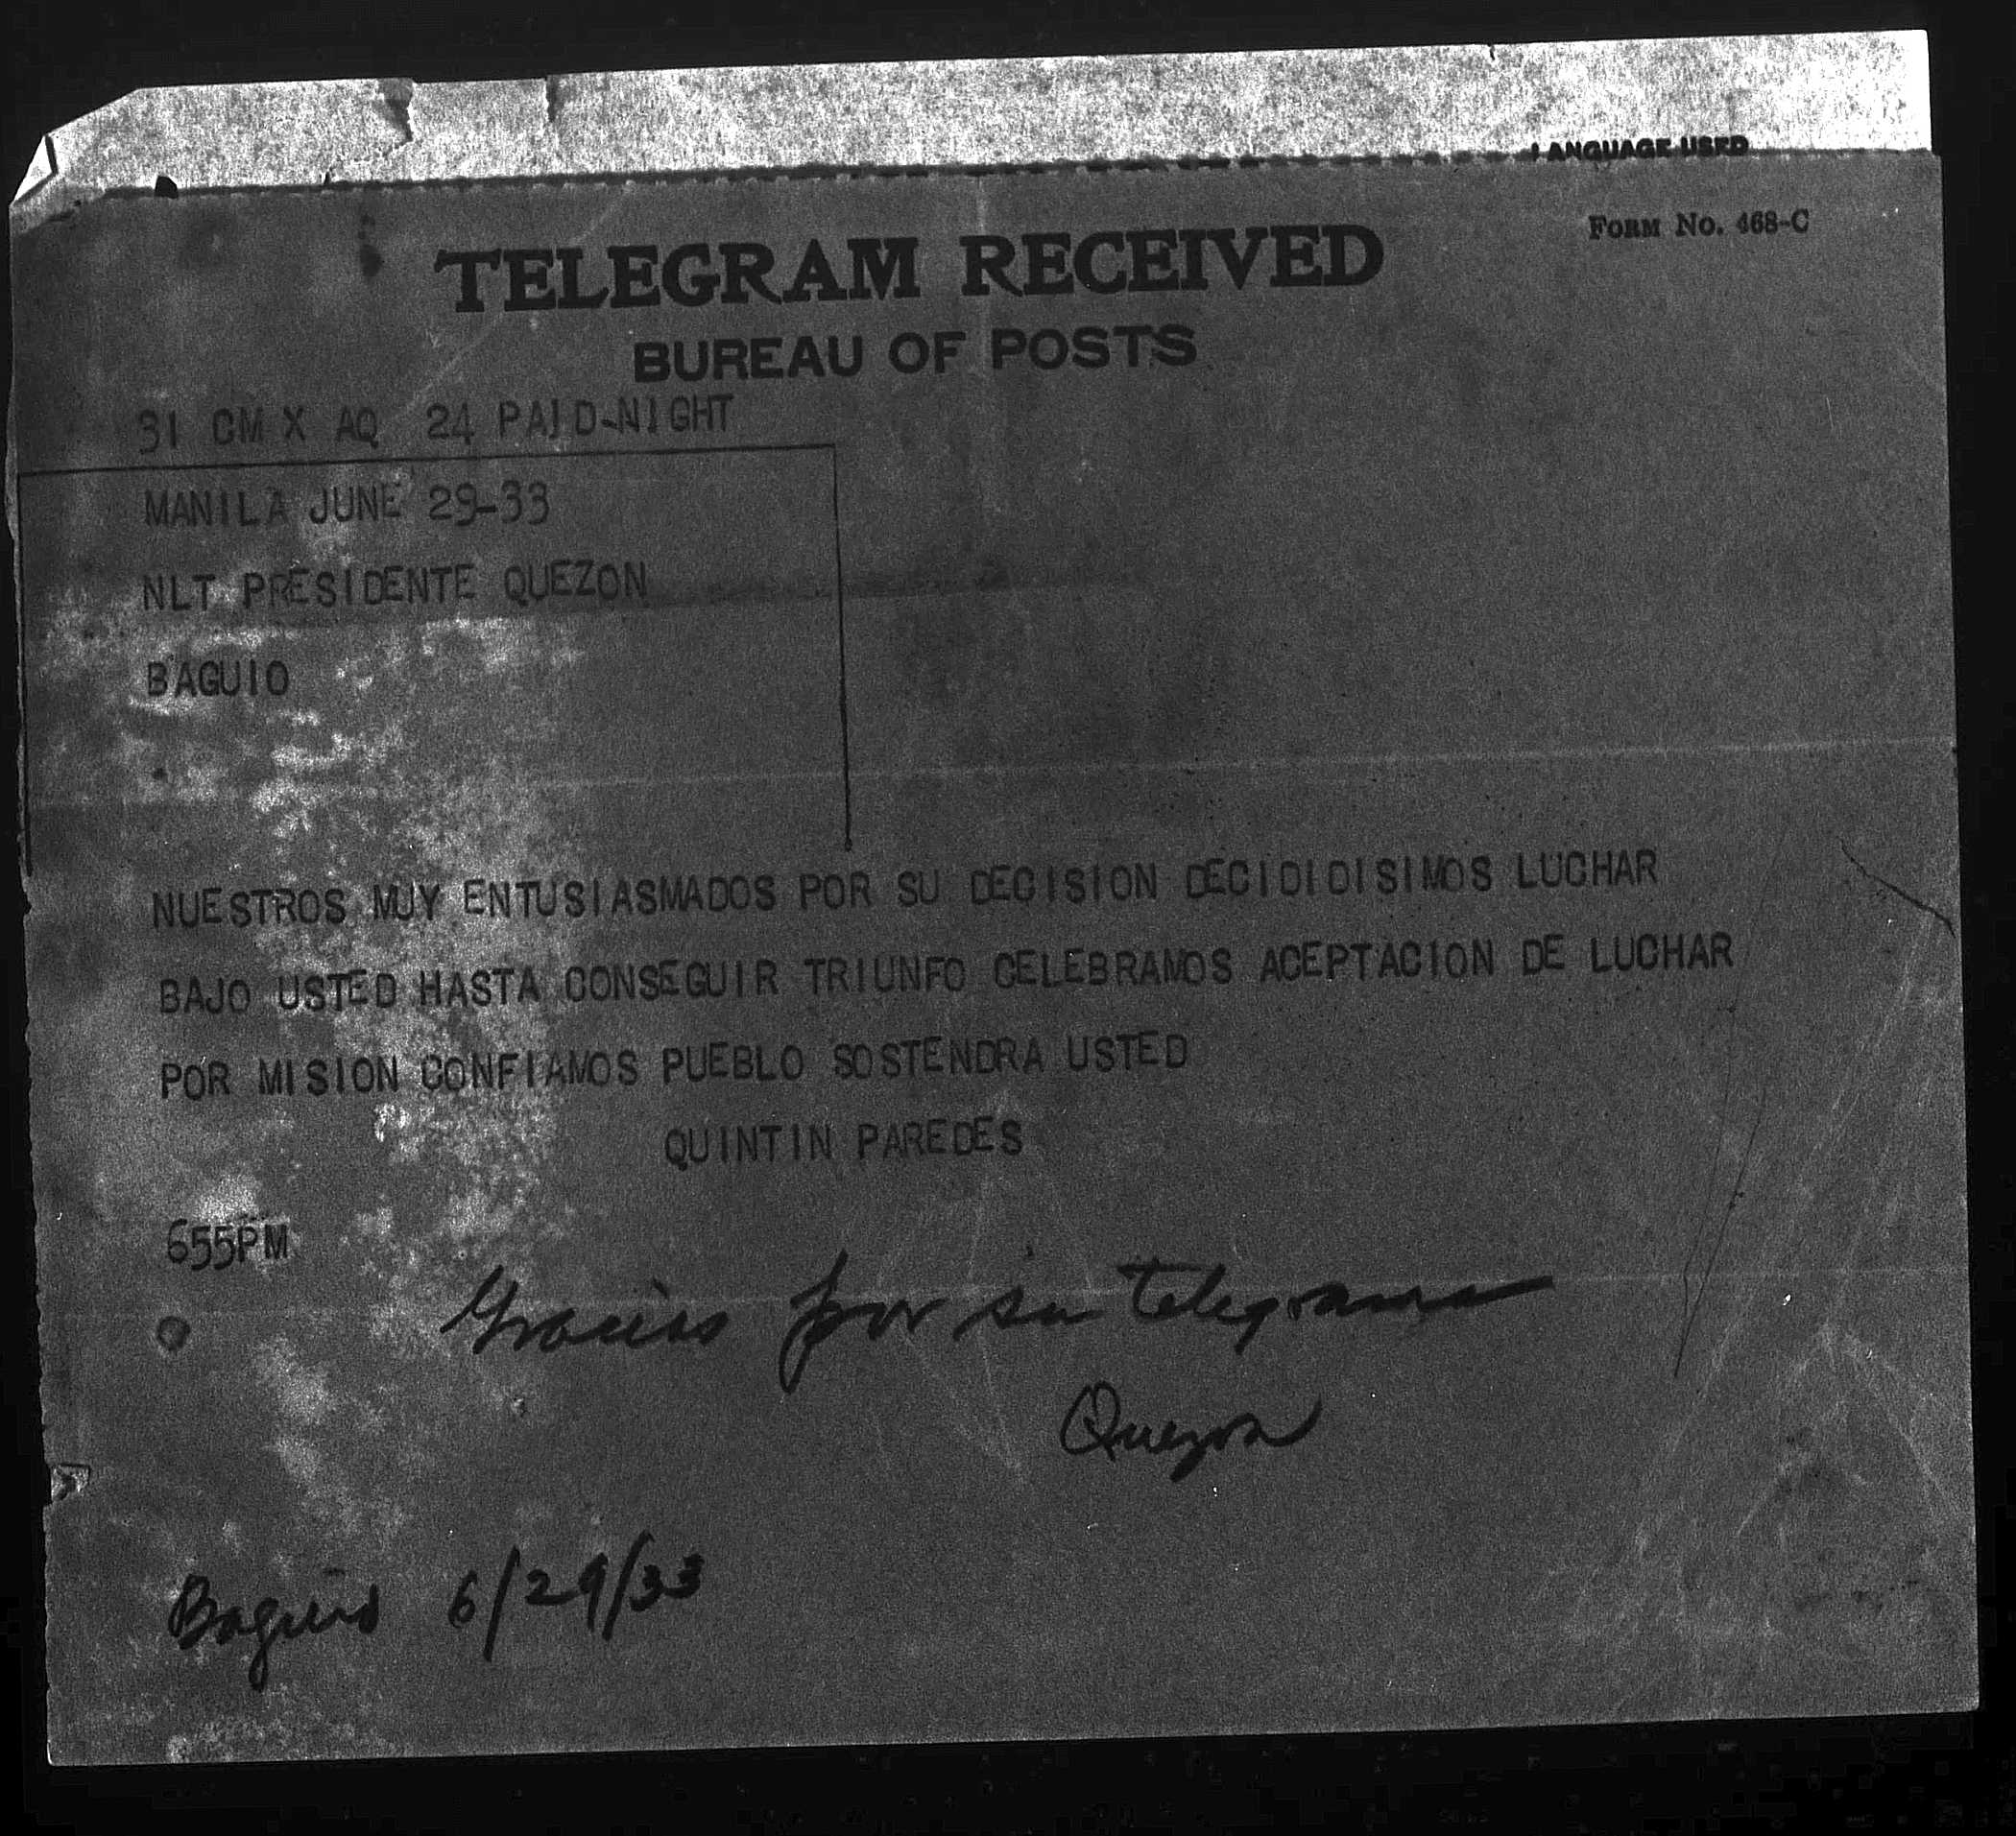 LANGUAGE USED
FORM NO. 468-C
TELEGRAM RECEIVED
BUREAU OF POSTS
31 CM X AQ 24 PAID-NIGHT
MANILA JUNE 29-33
NLT PRESIDENTE QUEZON
BAGUIO
NUESTROS MUY ENTUSIASMADOS POR SU DECISION DECIDIDISIMOS LUCHAR
BAJO USTED HASTA CONSEGUIR TRIUNFO CELEBRAMOS ACEPTACION DE LUCHAR
POR MISION CONFIAMOS PUEBLO SOSTENDRA USTED
QUINTIN PAREDES
655PM
Gracias por su telegrama
Quezon
Baguio 6/29/33